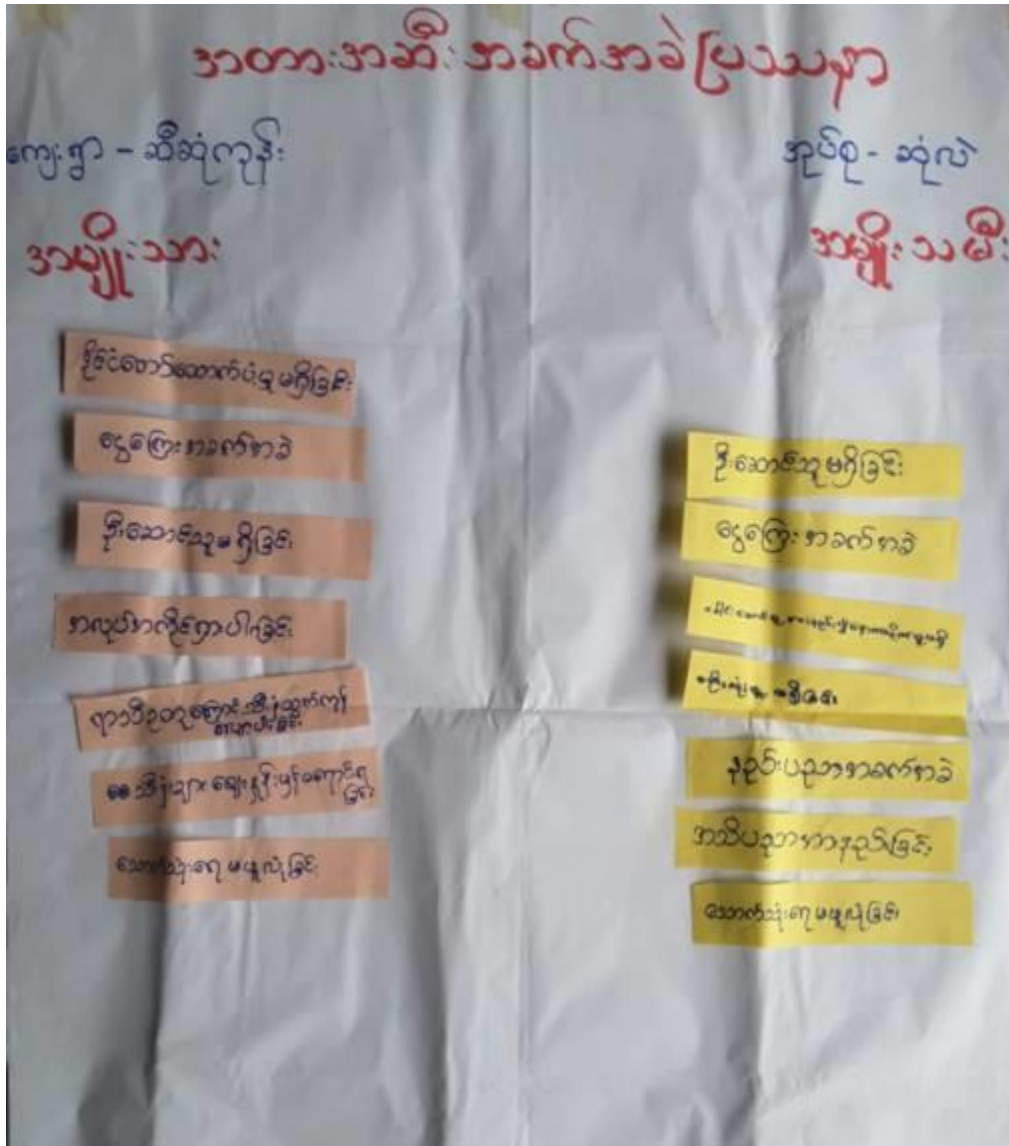 အတားအဆီးအခက်အခဲပြဿနာ
ကျေးရွာ - ဆီဆုံကုန်း
အုပ်စု - ဆုံလဲ
အမျိုးသား
နိုင်ငံတော်ထောက်ပံ့မှုမရှိခြင်း
ငွေကြေးအခက်အခဲ
ဦးဆောင်သူမရှိခြင်း
အလုပ်အကိုင်ရှားပါးခြင်း
ရာသီဥတုကြောင့်သီးနှံထွက်ကုန်
သီးနှံများဈေးနှုန်းမှန်မရောင်းရ
ခြင်း
သောက်သုံးရေမဖူလုံခြင်း
အမျိုးသမီး
ဦးဆောင်သူမရှိခြင်း
ငွေကြေးအခက်အခဲ
မရှိခြင်း
နည်းပညာအခက်အခဲ
အသိပညာအားနည်းခြင်း
သောက်သုံးရေမဖူလုံခြင်း